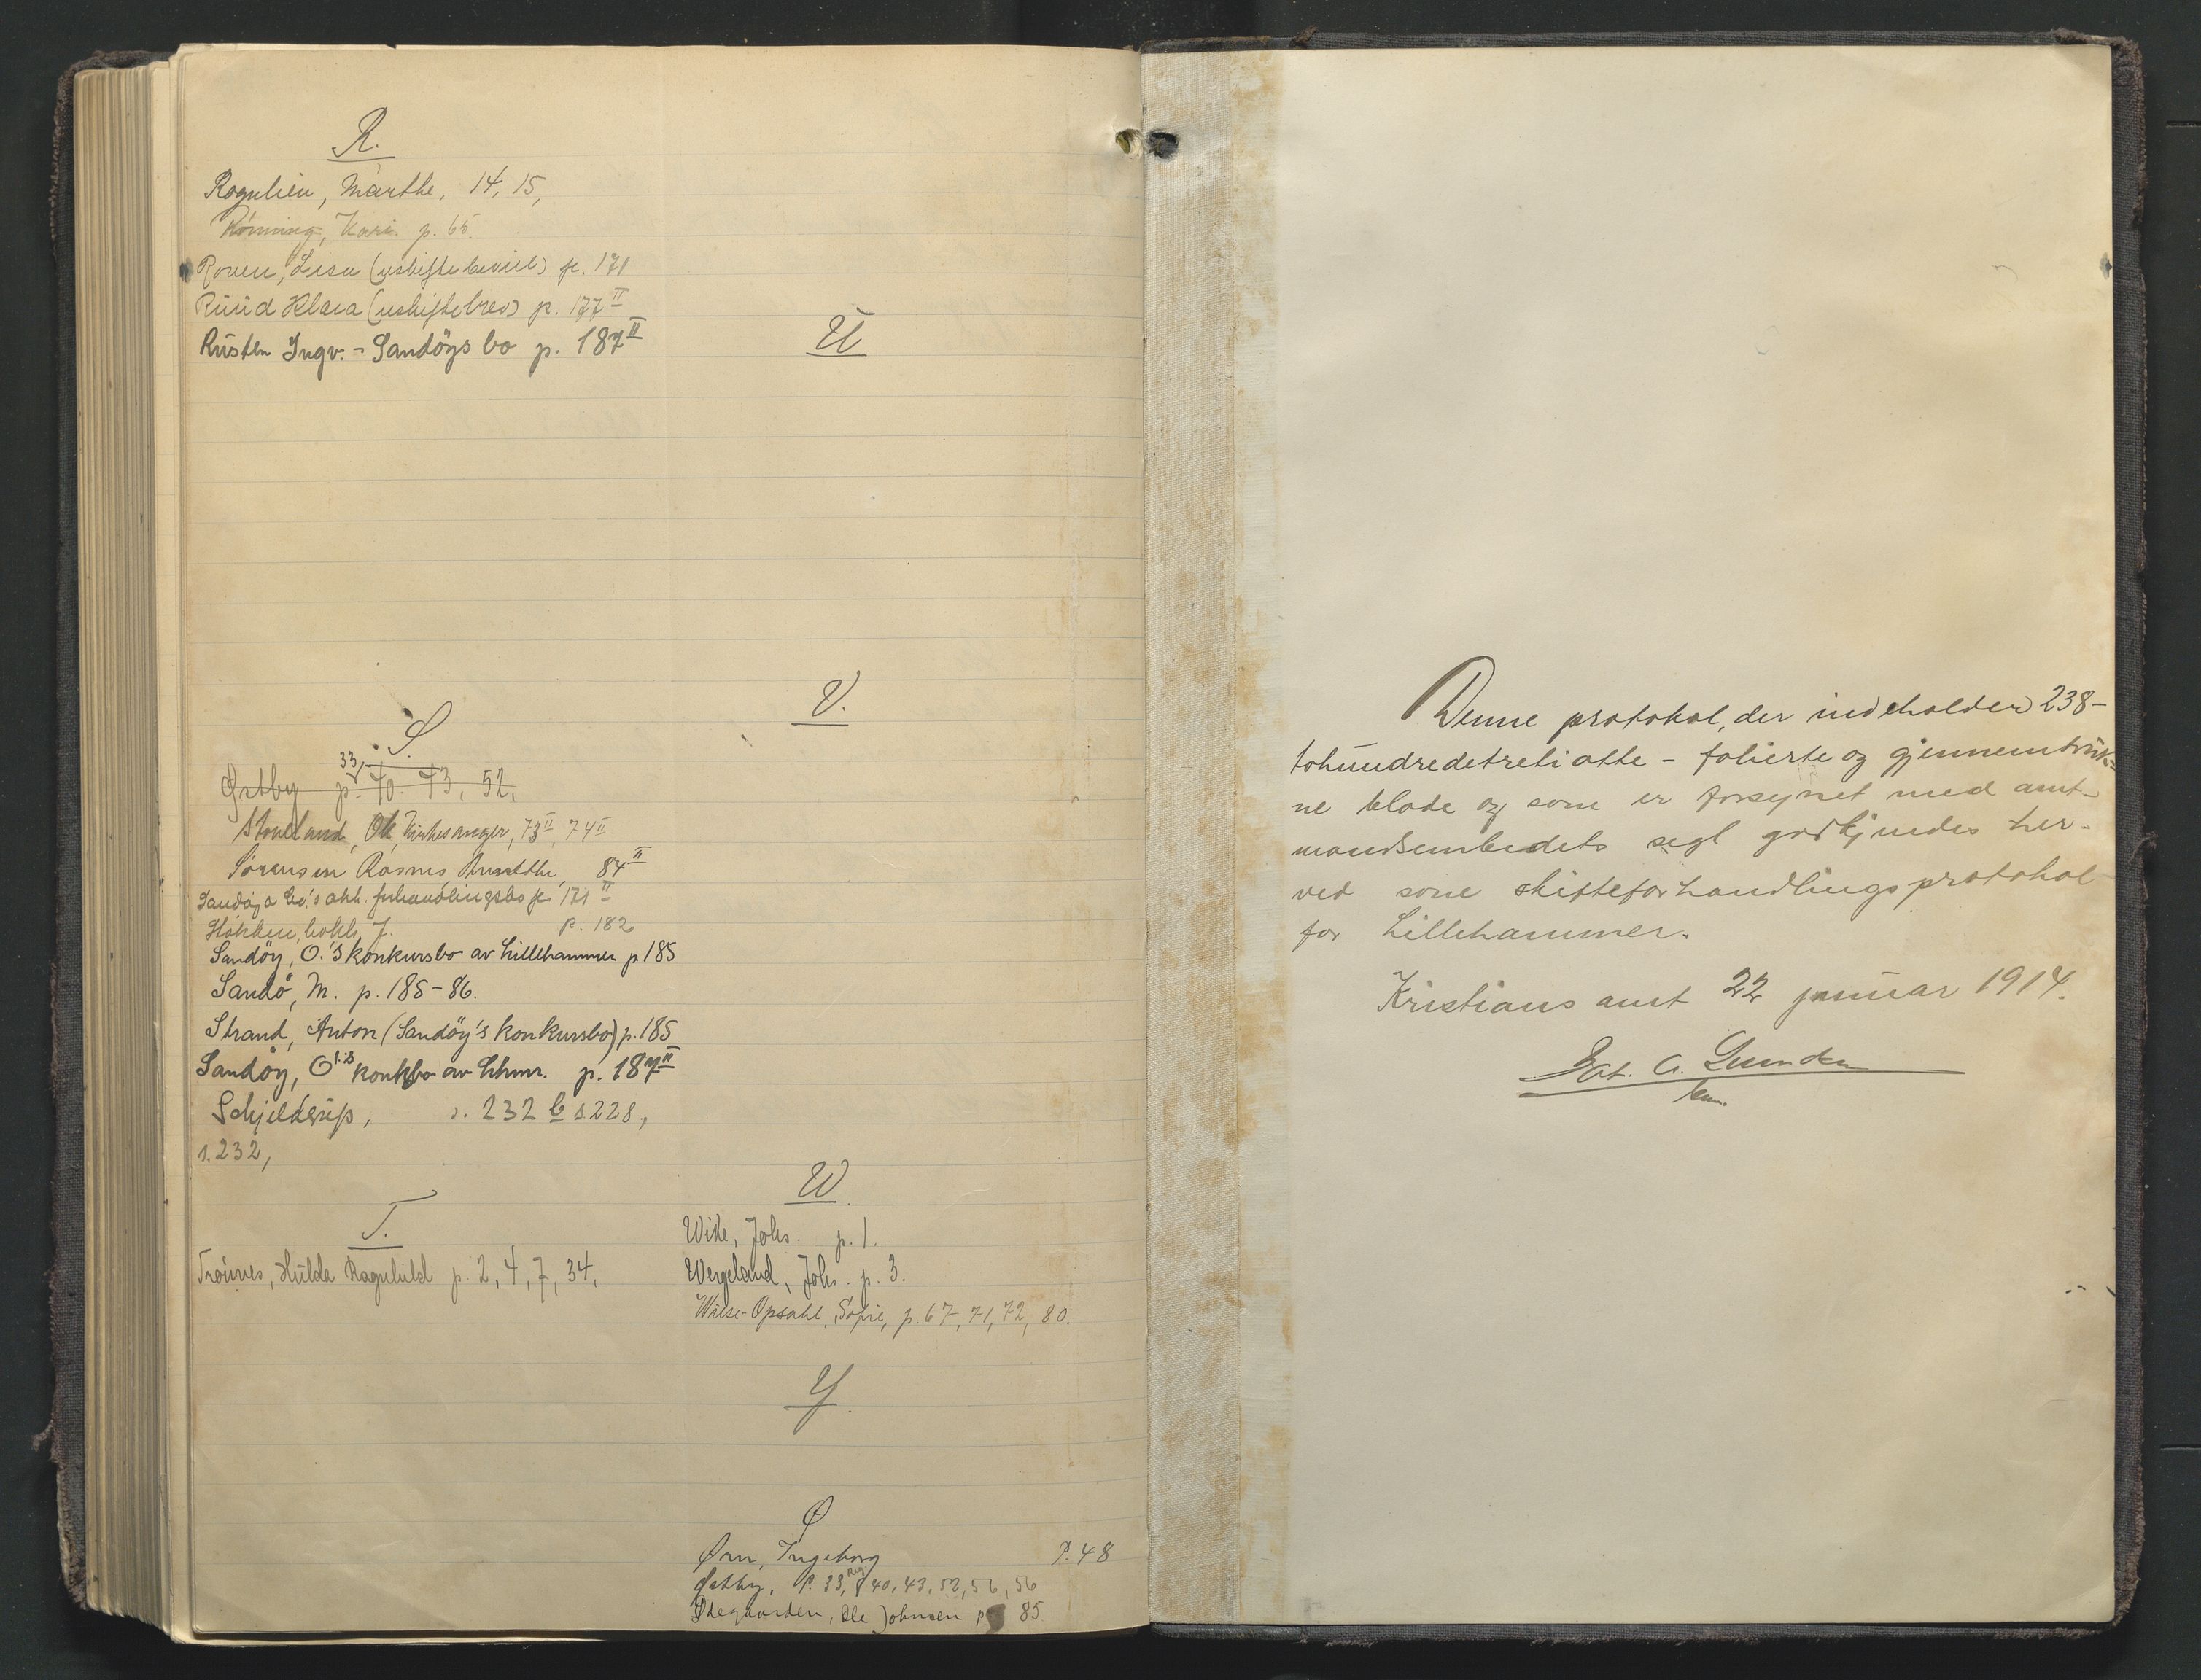 R.
Rognlien, Marthe, 14, 15,
Rönning, Kari p. 65.
Roven, Lisa (uskiftebevill) p. 171
Ruud Klara (uskiftebrev) p. 177 II
Rusten Ingv. - Sandöys bo p. 187 II
S.
33
Østby p. 40. 43, 52,
Stoveland, Ole, Kirkesanger, 73 II, 74 II
Sörensen Rasmus, 84 II
Sandöy a bo's akk. forhandlingsbo p. 171 II
Hökken, J. p. 182
Sandöy, O.'s konkursbo av Lillehammer p 185
Sandö, M. p. 185-86.
Strand, Anton (Sandöy's konkursbo) p. 185
Sandöy, O's konkbo av Lhmr. p. 187 II
Schjelderup, s. 232 b s. 228,
s. 232,
T.
Trönnes, Hulda Ragnhild p. 2, 4, 7, 34,
U
V.
W.
Wike, Johs. p. 1.
Wergeland, Johs. p. 3.
Wiese-Opsahl, Sofie, p. 67, 71, 72, 80.
Y.
Ø
Ørn, Ingeborg P. 48
Østby, P. 33, 40, 43, 52, 56, 56
Ødegaarden, Ole Johnsen p 85
Denne protokol, der indeholder 238-
tohundredetretiotte - folierte og gjennemtruk=
ne blade og som er forsynet med amt-
mandsembedets segl godkjendes her-
ved som skifteforhandlingsprotokol
for Lillehammer.
Kristians amt 22 januar 1914.
G. Lunden